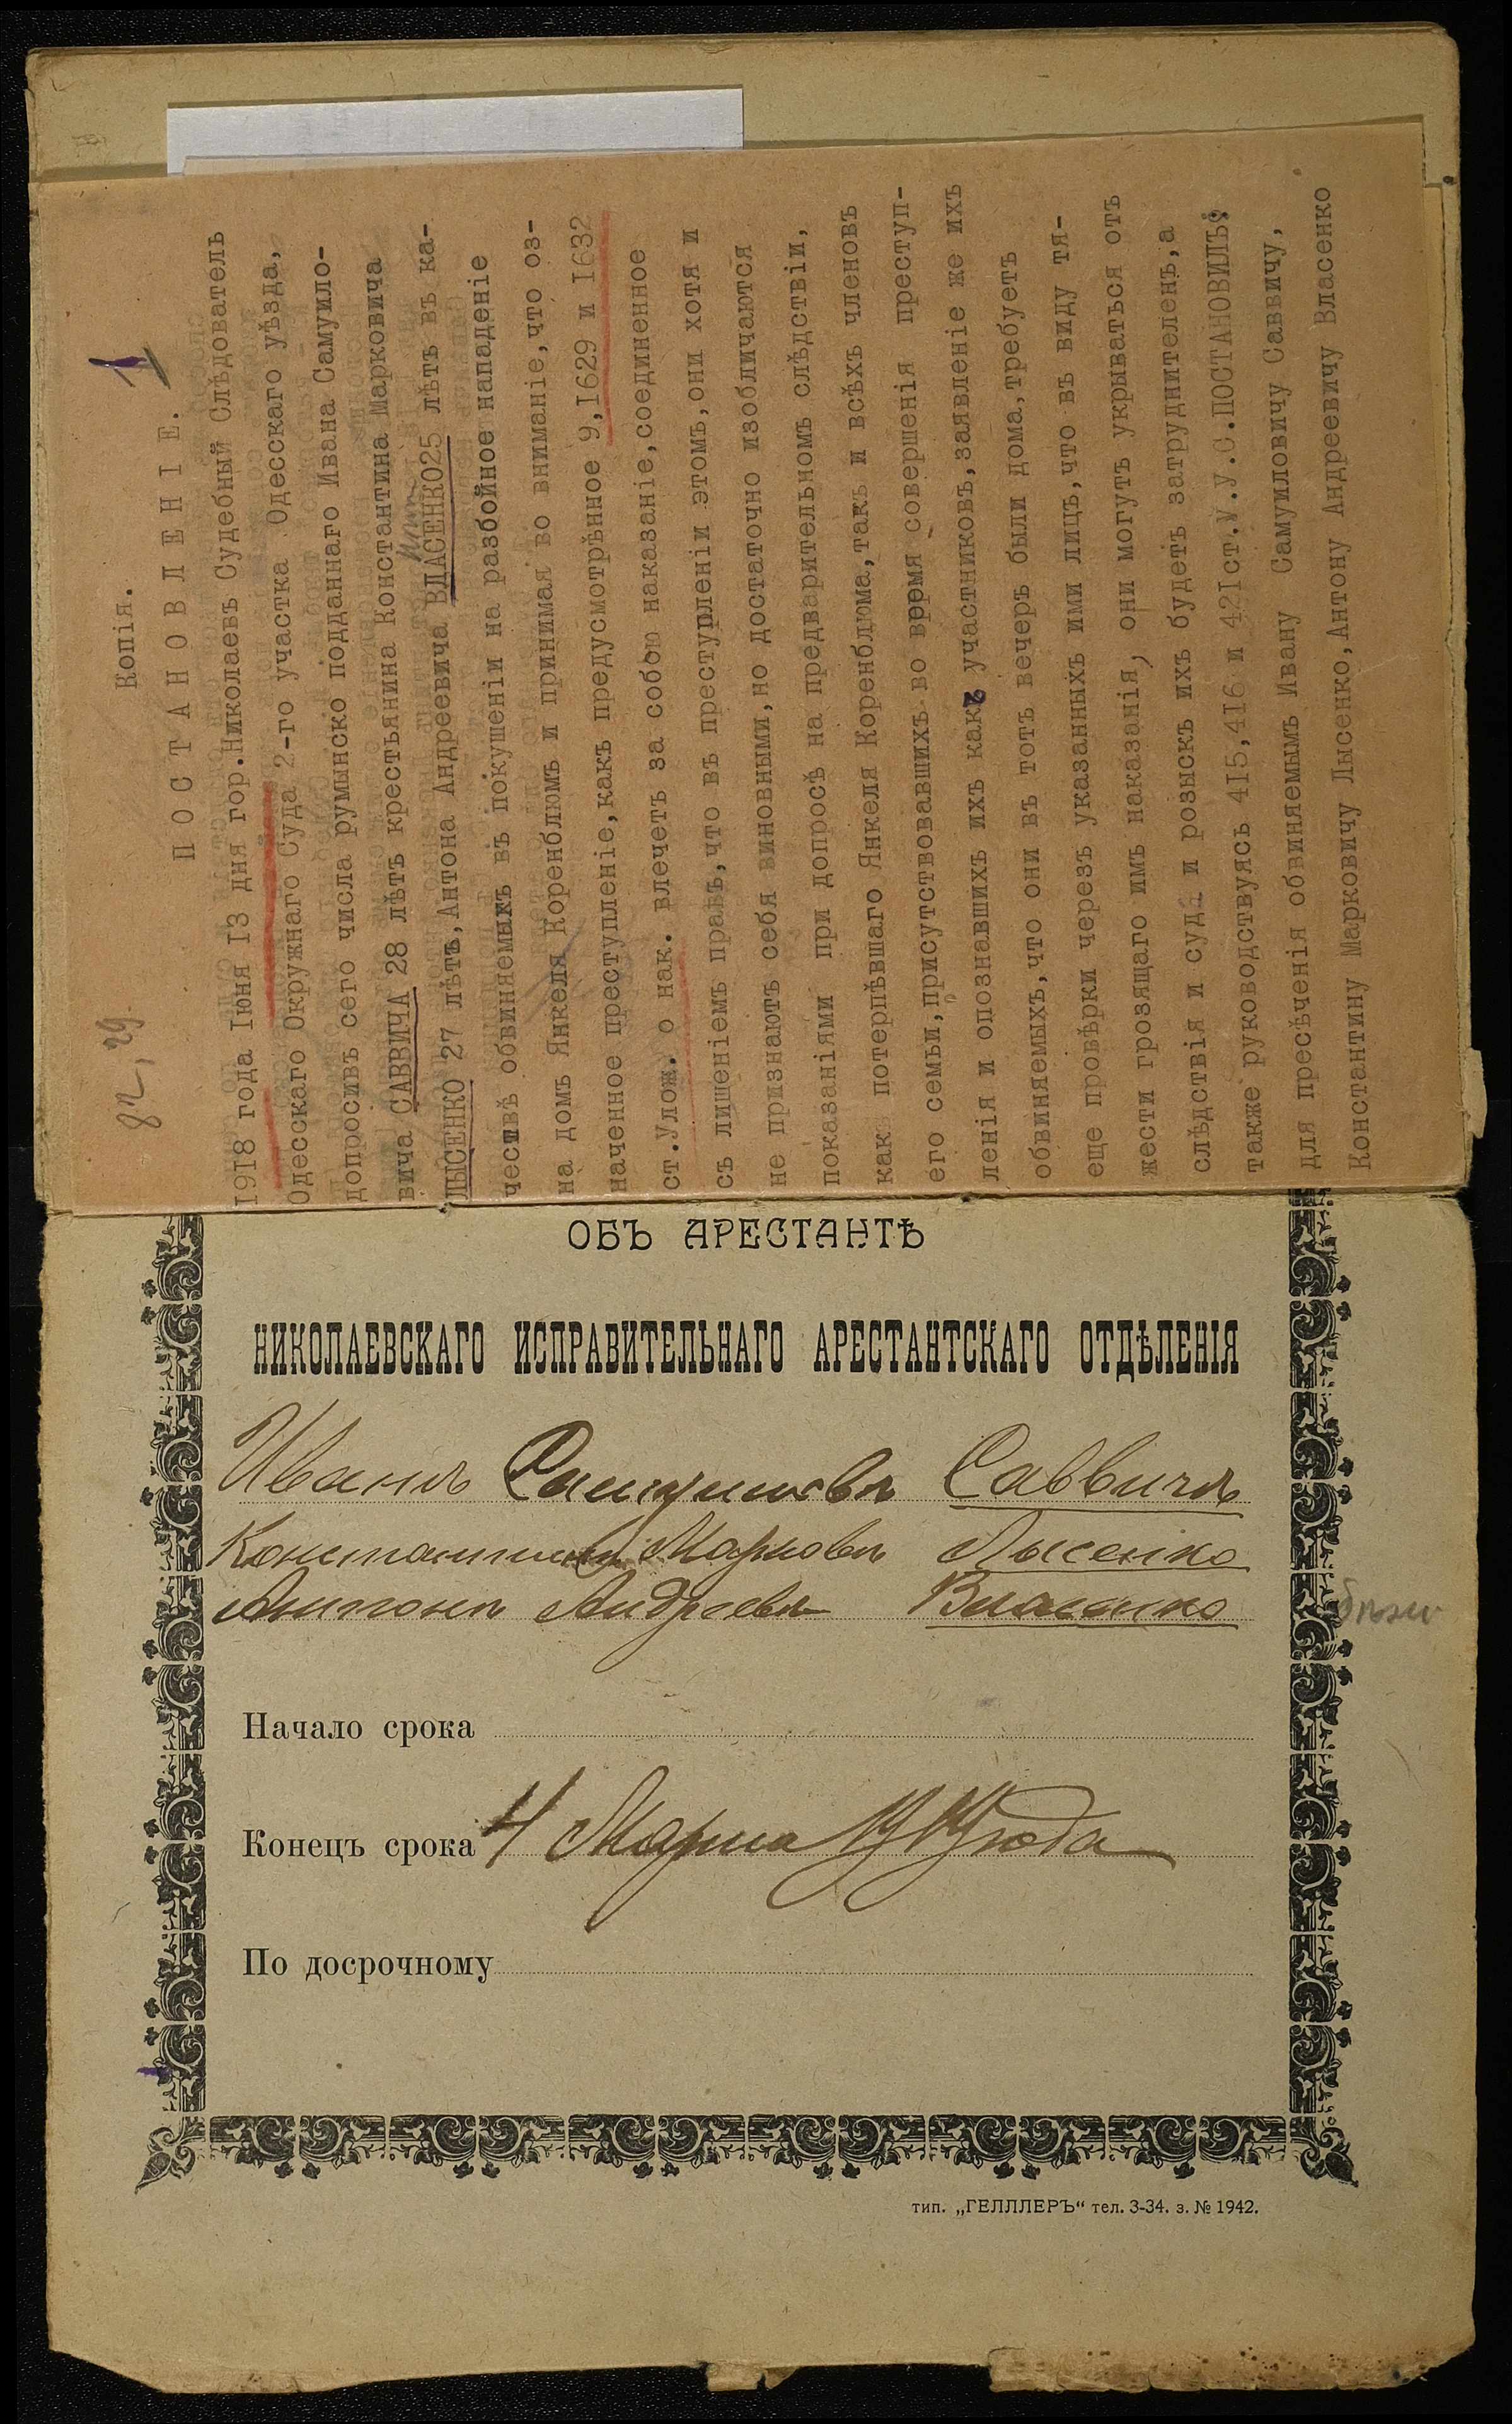 82, 29.
1
Копія.
ПОСТАНОВЛЕНІЕ.
1918 года Іюня 13 дня гор.Николаевъ Судебный Слѣдователь
Одесскаго Окружнаго Суда 2-го участка Одесскаго уѣзда,
допросивъ сего числа румынско подданнаго Ивана Самуило-
вича САВВИЧА 28 лѣтъ крестьянина Константина Марковича
ЛЫСЕНКО 27 лѣтъ,Антона Андреевича ВЛАСЕНКО25 лѣтъ въ ка-
чествѣ обвиняемыхъ въ покушеніи на разбойное нападеніе
на домъ Янкеля Коренблюмъ и принимая во вниманіе,что оз-
наченное преступленіе,какъ предусмотрѣнное 9,1629 и 1632
ст.Улож. о нак. влечетъ за собою наказаніе,соединенное
съ лишеніемъ правъ,что въ преступленіи этомъ,они хотя и
не признаютъ себя виновными,но достаточно изобличаются
показаніями при допросѣ на предварительномъ слѣдствіи,
какъ потерпѣвшаго Янкеля Коренблюма,такъ и всѣхъ членовъ
его семьи,присутствовавшихъ во время совершенія преступ-
ленія и опознавшихъ ихъ какъ участниковъ,заявленіе же ихъ
обвиняемыхъ,что они въ тотъ вечеръ были дома,требуетъ
еще провѣрки черезъ указанныхъ ими лицъ,что въ виду тя-
жести грозящаго имъ наказанія, они могутъ укрываться отъ
слѣдствія и суда и розыскъ ихъ будетъ затруднителенъ,а
также руководствуясь 415,416 и 421ст.У.У.С.ПОСТАНОВИЛЪ:
для пресѣченія обвиняемымъ Ивану Самуиловичу Саввичу,
Константину Марковичу Лысенко,Антону Андреевичу Власенко
ОБЪ АРЕСТАНТѢ
НИКОЛАЕВСКАГО ИСПРАВИТЕЛЬНАГО АРЕСТАНТСКАГО ОТДѢЛЕНІЯ
Иванъ Самуиловъ Саввичъ
Константинъ Марковъ Лысенко
Антонъ Андреевъ Власенко
Начало срока
Конецъ срока 4 Марта года
По досрочному
тип. „ГЕЛЛЛЕРЪ“ тел. 3-34. з. № 1942.